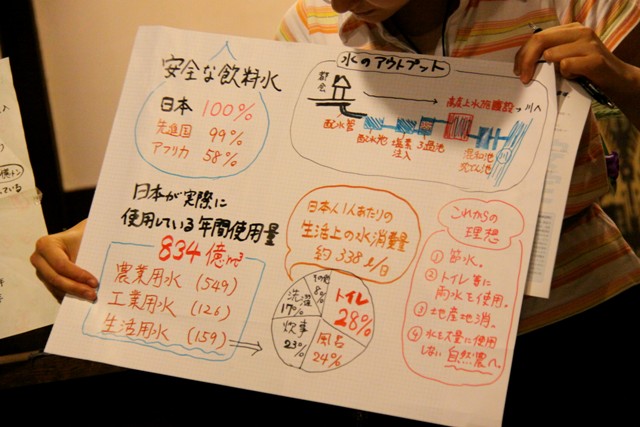 安全な飲料水
日本 100%
先進国 99%
アフリカ 58%
水のアウトプット
都会
高度上水施設
川へ
配水管
配水池
塩素
注入
3過池
混和池
日本が実際に
使用している年間使用量
834億m³
農業用水 (549)
工業用水 (126)
生活用水 (159)
日本人1人あたりの
生活上の水消費量
約 338ℓ/日
その他
8%
トイレ
28%
風呂
24%
炊事
23%
洗濯
17%
これからの
理想
① 節水。
② トイレ等に
雨水を使用。
③ 地産地消。
④ 水を大量に使用
しない 自然農へ。